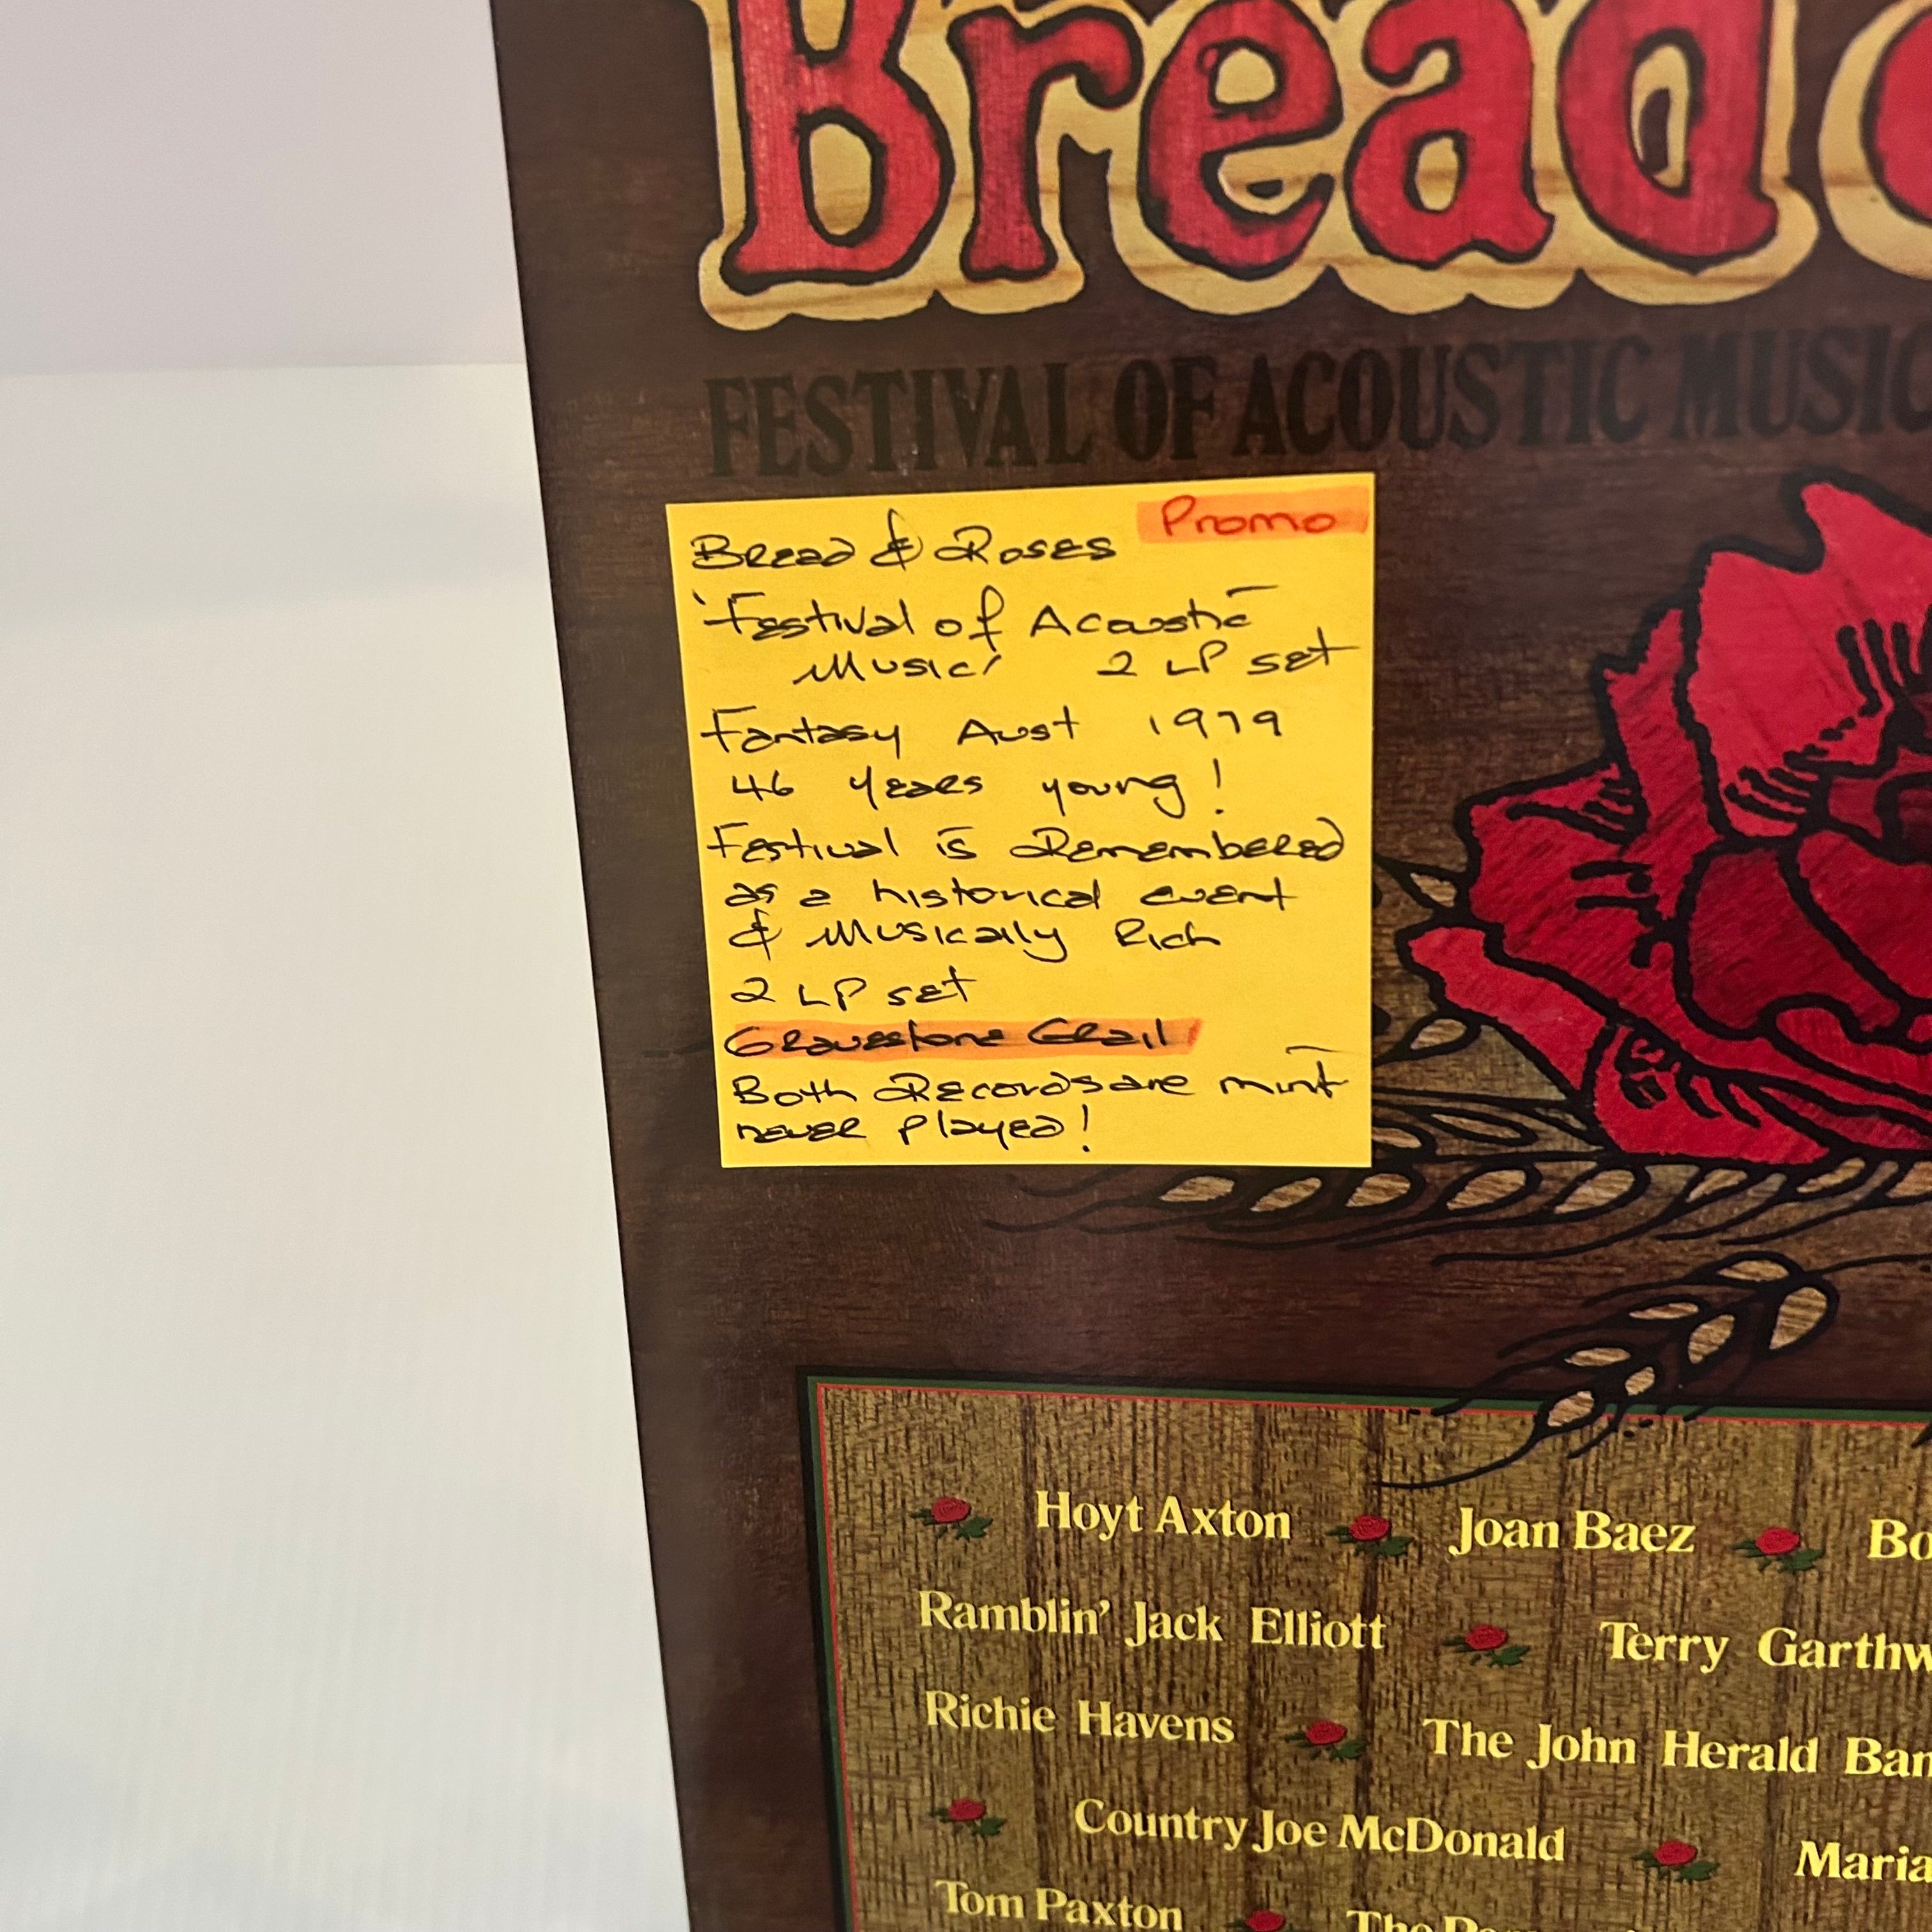 Bread
FESTIVAL OF ACOUSTIC MUSIC
Promo
Bread & Roses
'Festival of Acoustic
Music' 2 LP set
Fantasy Aust 1979
46 years young!
Festival is Remembered
as a historical event
& Musically Rich
2 LP set
Gravestone Grail
Both Records are mint
never played!
Hoyt Axton Joan Baez Bo
Ramblin' Jack Elliott Terry Garthw
Richie Havens The John Herald Ban
Country Joe McDonald Maria
Tom Paxton The